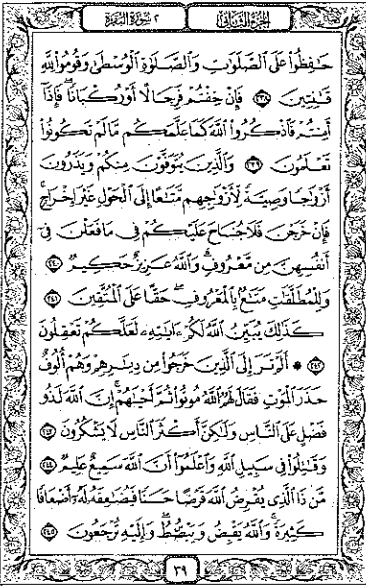 الجزء الثاني
٢ سورة البقرة
حَٰفِظُوا۟ عَلَى ٱلصَّلَوَٰتِ وَٱلصَّلَوٰةِ ٱلْوُسْطَىٰ وَقُومُوا۟ لِلَّهِ
قَٰنِتِينَ ٢٣٨ فَإِنْ خِفْتُمْ فَرِجَالًا أَوْ رُكْبَانًا ۖ فَإِذَآ
أَمِنتُمْ فَٱذْكُرُوا۟ ٱللَّهَ كَمَا عَلَّمَكُم مَّا لَمْ تَكُونُوا۟
تَعْلَمُونَ ٢٣٩ وَٱلَّذِينَ يُتَوَفَّوْنَ مِنكُمْ وَيَذَرُونَ
أَزْوَٰجًا وَصِيَّةً لِّأَزْوَٰجِهِم مَّتَٰعًا إِلَى ٱلْحَوْلِ غَيْرَ إِخْرَاجٍ ۚ
فَإِنْ خَرَجْنَ فَلَا جُنَاحَ عَلَيْكُمْ فِى مَا فَعَلْنَ فِىٓ
أَنفُسِهِنَّ مِن مَّعْرُوفٍ ۗ وَٱللَّهُ عَزِيزٌ حَكِيمٌ ٢٤٠
وَلِلْمُطَلَّقَٰتِ مَتَٰعٌۢ بِٱلْمَعْرُوفِ ۖ حَقًّا عَلَى ٱلْمُتَّقِينَ ٢٤١
كَذَٰلِكَ يُبَيِّنُ ٱللَّهُ لَكُمْ ءَايَٰتِهِۦ لَعَلَّكُمْ تَعْقِلُونَ
٢٤٢ * أَلَمْ تَرَ إِلَى ٱلَّذِينَ خَرَجُوا۟ مِن دِيَٰرِهِمْ وَهُمْ أُلُوفٌ
حَذَرَ ٱلْمَوْتِ فَقَالَ لَهُمُ ٱللَّهُ مُوتُوا۟ ثُمَّ أَحْيَٰهُمْ ۚ إِنَّ ٱللَّهَ لَذُو
فَضْلٍ عَلَى ٱلنَّاسِ وَلَٰكِنَّ أَكْثَرَ ٱلنَّاسِ لَا يَشْكُرُونَ ٢٤٣
وَقَٰتِلُوا۟ فِى سَبِيلِ ٱللَّهِ وَٱعْلَمُوٓا۟ أَنَّ ٱللَّهَ سَمِيعٌ عَلِيمٌ ٢٤٤
مَّن ذَا ٱلَّذِى يُقْرِضُ ٱللَّهَ قَرْضًا حَسَنًا فَيُضَٰعِفَهُۥ لَهُۥٓ أَضْعَافًا
كَثِيرَةً ۚ وَٱللَّهُ يَقْبِضُ وَيَبْصُۜطُ وَإِلَيْهِ تُرْجَعُونَ ٢٤٥
٣٩